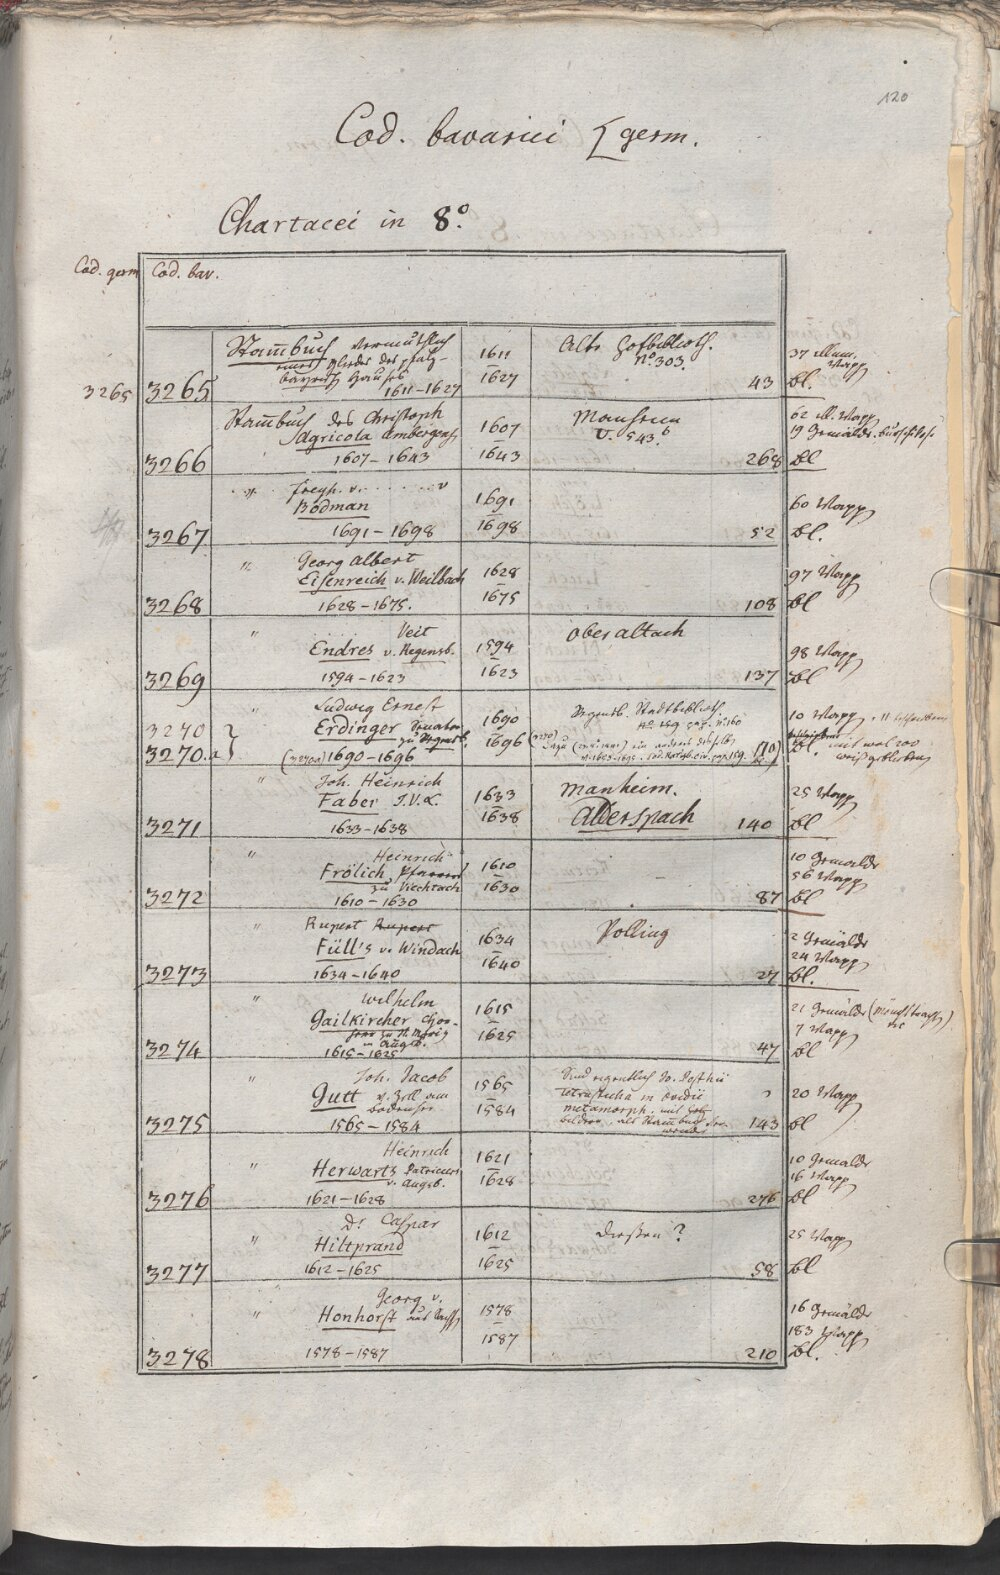 120
Cod. bavarici [germ.
Chartacei in 8º.
Cod. germ Cod. bav.
3265 3265 Stam̅buch vermuthlich
eines Glieds des pfalz-
bayerß Hauses
1611–1627
1611
–
1627
Alte Hofbiblioth.
nº 303.
43
37 Wapp
bl.
3266 Stam̅buch des Christoph
Agricola Ambergens.
1607–1643
1607
–
1643
V. 543.b
268
62 Wapp
19 Gemälde
bl
3267 " freyh. v. v
Bodman
1691–1698
1691
–
1698
52
60 Wapp
bl.
3268 " Georg Albert
Eisenreich v. Weilbach
1628–1675.
1628
–
1675
108
97 Wapp
bl
3269 " Veit
Endres v. Regensb.
1594–1623
1594
–
1623
Oberaltach
137
98 Wapp
bl
3270 " Ludwig Ernest
3270.a } Erdinger Senator
zu Regensb.
(3270a) 1690–1696
1690
–
1696
Regensb. Stadtbiblioth.
(3270)
170
10 Wapp
bl.
weiß geblieben
3271 " Joh. Heinrich
Faber J.V.L.
1633–1638
1633
–
1638
Manheim.
Alderspach
140
25 Wapp
bl
3272 " Heinrich
Frölich Pfarrer
zu Viechtach
1610–1630
1610
–
1630
87
10 Gemälde
56 Wapp
bl
3273 " Rupert Rupert
Füll's v. Windach
1634–1640
1634
–
1640
Polling
27
2 Gemälde
24 Wapp
bl.
3274 " Wilhelm
Gailkircher Chor-
herr zu St Moriz
in Augsb.
1615–1625
1615
–
1625
47
21 Gemälde
7 Wapp
bl
3275 " Joh. Jacob
Gutt v. Zell am
Bodensee
1565–1584
1565
–
1584
Sind eigentlich Jo. Posthii
tetrasticha in Ovidii
metamorph. mit Holz-
bildern, als Stam̅buch
143
20 Wapp
bl
3276 " Heinrich
Herwarts Patricius
v. Augsb.
1621–1628
1621
–
1628
276
10 Gemälde
16 Wapp
bl
3277 " Dr Caspar
Hiltprand
1612–1625
1612
–
1625
Diessen?
58
25 Wapp
bl
3278 " Georg v.
Honhorst aus Sachß
1578–1587
1578
–
1587
210
16 Gemälde
183 Wapp
bl.